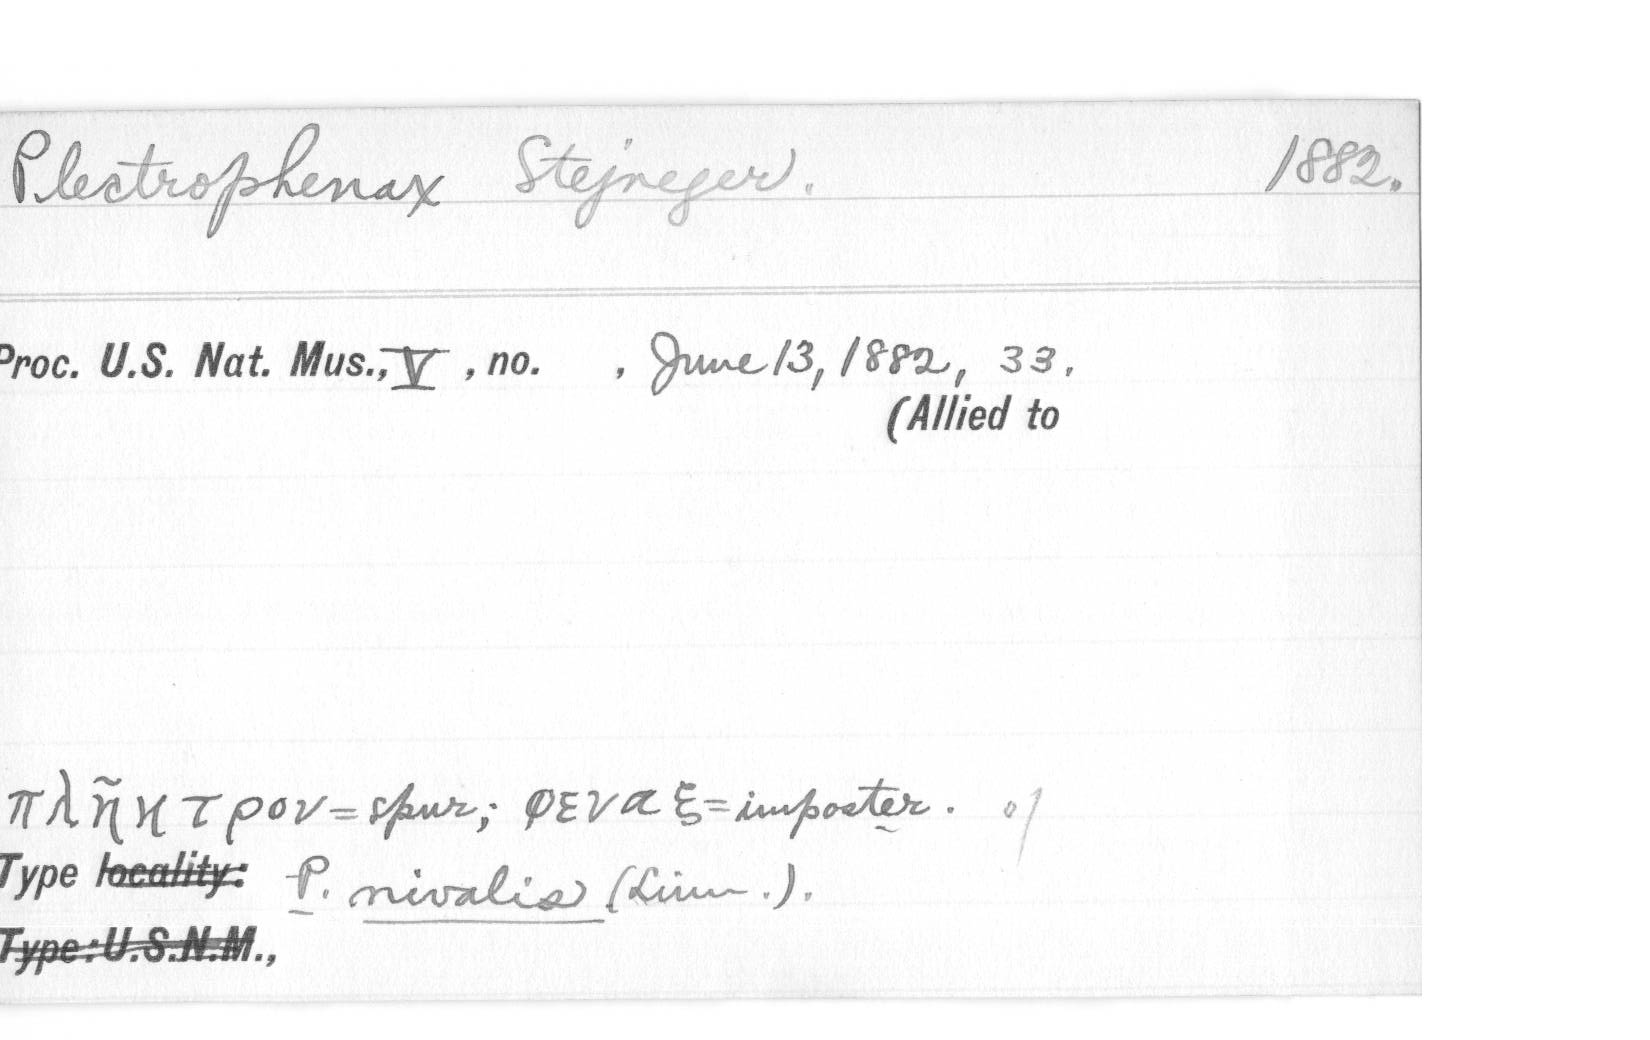 Plectrophenax Stejneger. 1882.
Proc. U.S. Nat. Mus., V , no. , June 13, 1882, 33.
(Allied to
πλῆκτρον = spur; φεναξ = imposter.
Type locality: P. nivalis (Linn.).
Type: U.S.N.M.,